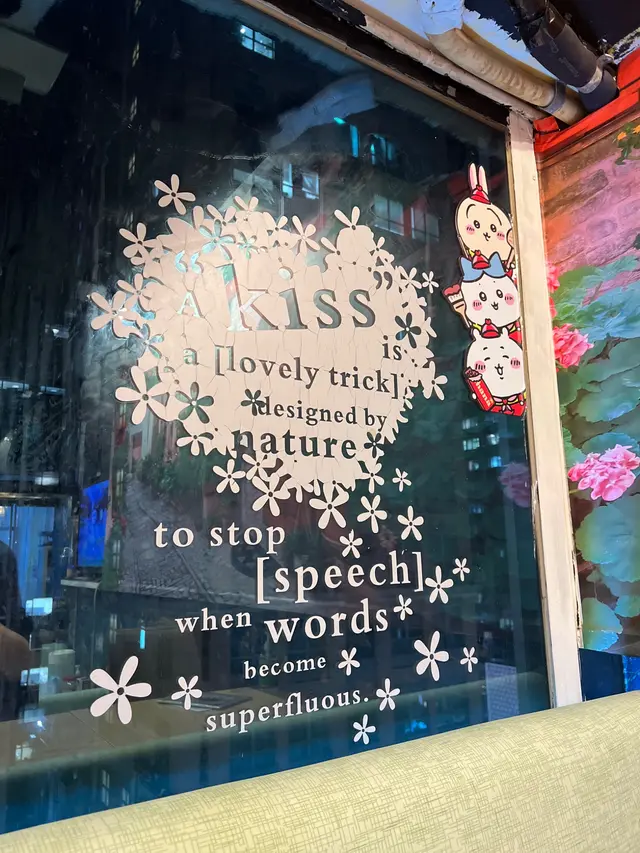 A “kiss” is
a [lovely trick]
designed by
nature
to stop
[speech]
when words
become
superfluous.